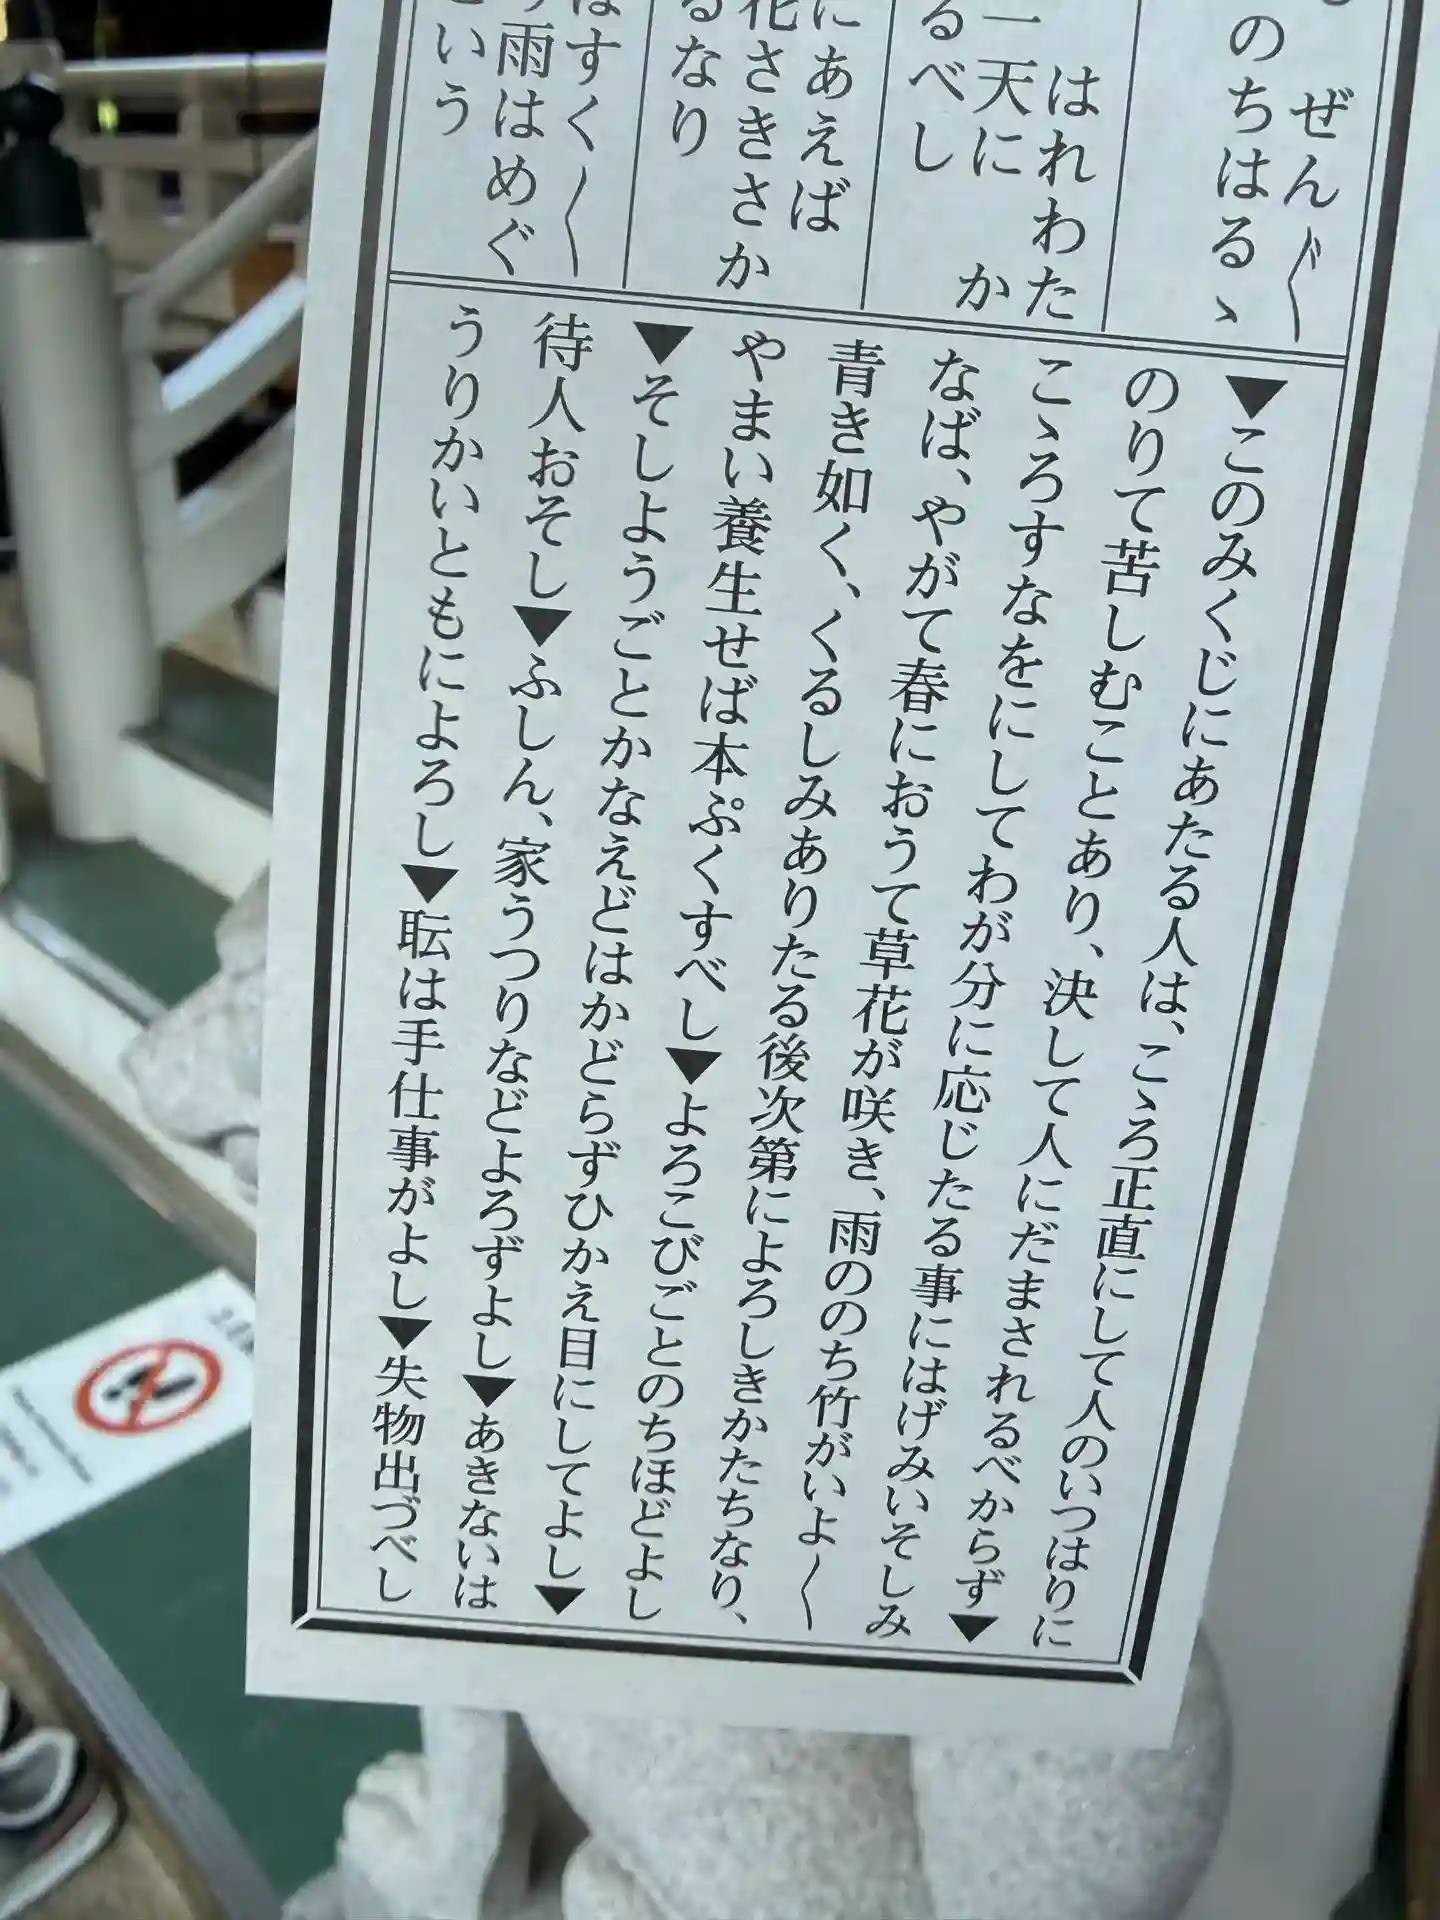 ぜん〴〵
のちはるゝ
はれわた
一天に　か
るべし
にあえば
花さきさか
るなり
はすく〳〵
雨はめぐ
という
▼このみくじにあたる人は、こゝろ正直にして人のいつはりに
のりて苦しむことあり、決して人にだまされるべからず▼
こゝろすなをにしてわが分に応じたる事にはげみいそしみ
なば、やがて春におうて草花が咲き、雨ののち竹がいよ〳〵
青き如く、くるしみありたる後次第によろしきかたちなり、
やまい養生せば本ぷくすべし▼よろこびごとのちほどよし
▼そしようごとかなえどはかどらずひかえ目にしてよし▼
待人おそし▼ふしん、家うつりなどよろずよし▼あきないは
うりかいともによろし▼耺は手仕事がよし▼失物出づべし